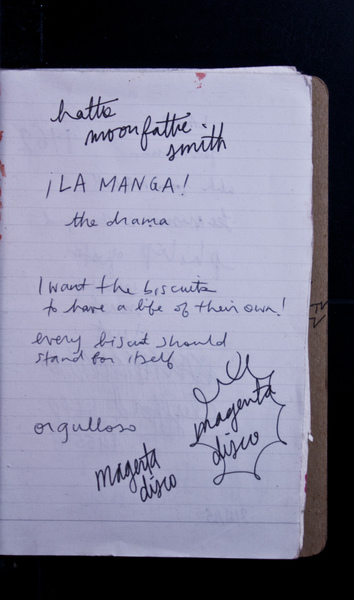 hatts
moonfattie
smith
¡LA MANGA!
the drama
I want the biscuits
to have a life of their own!
every biscuit should
stand for itself
magenta
disco
orgulloso
magenta
disco